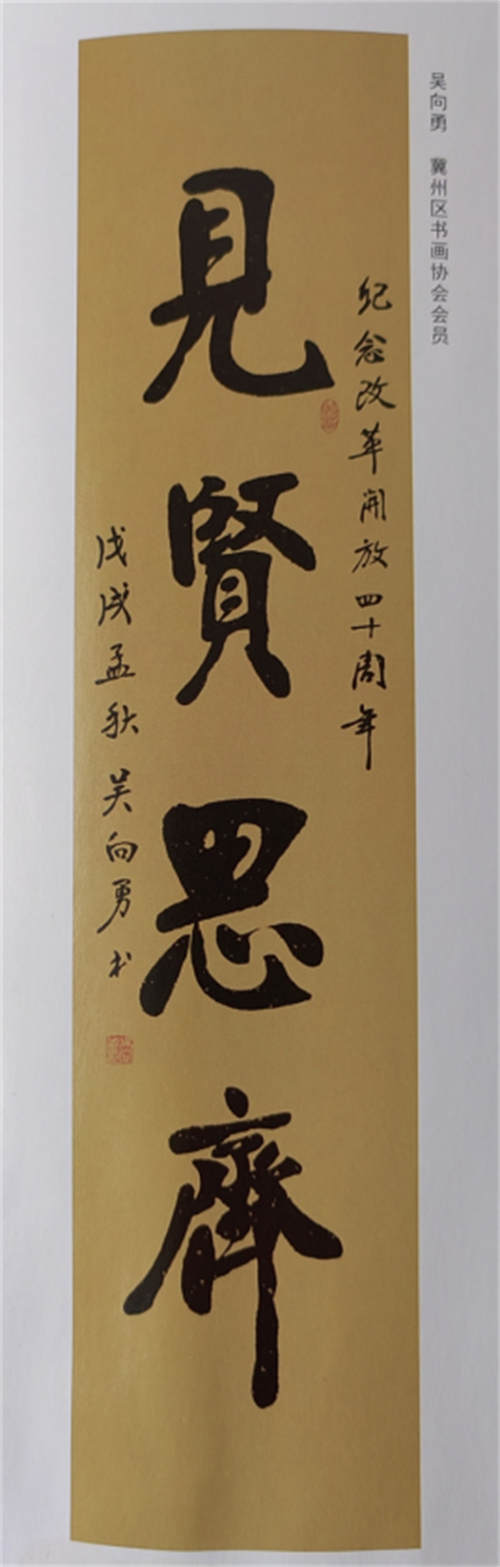 吴向勇 冀州区书画协会会员
纪念改革開放四十周年
見賢思齊
戊戌孟秋吴向勇书